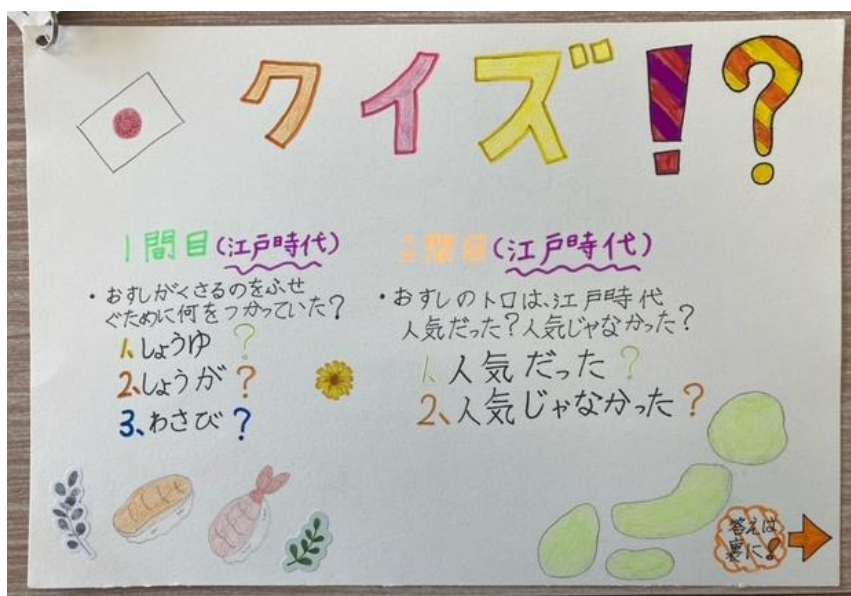 クイズ!?
1問目(江戸時代)
・おすしがくさるのをふせ
ぐために何をつかっていた?
1、しょうゆ?
2、しょうが?
3、わさび?
2問目(江戸時代)
・おすしのトロは、江戸時代
人気だった?人気じゃなかった?
1、人気だった?
2、人気じゃなかった?
答えは
裏に!